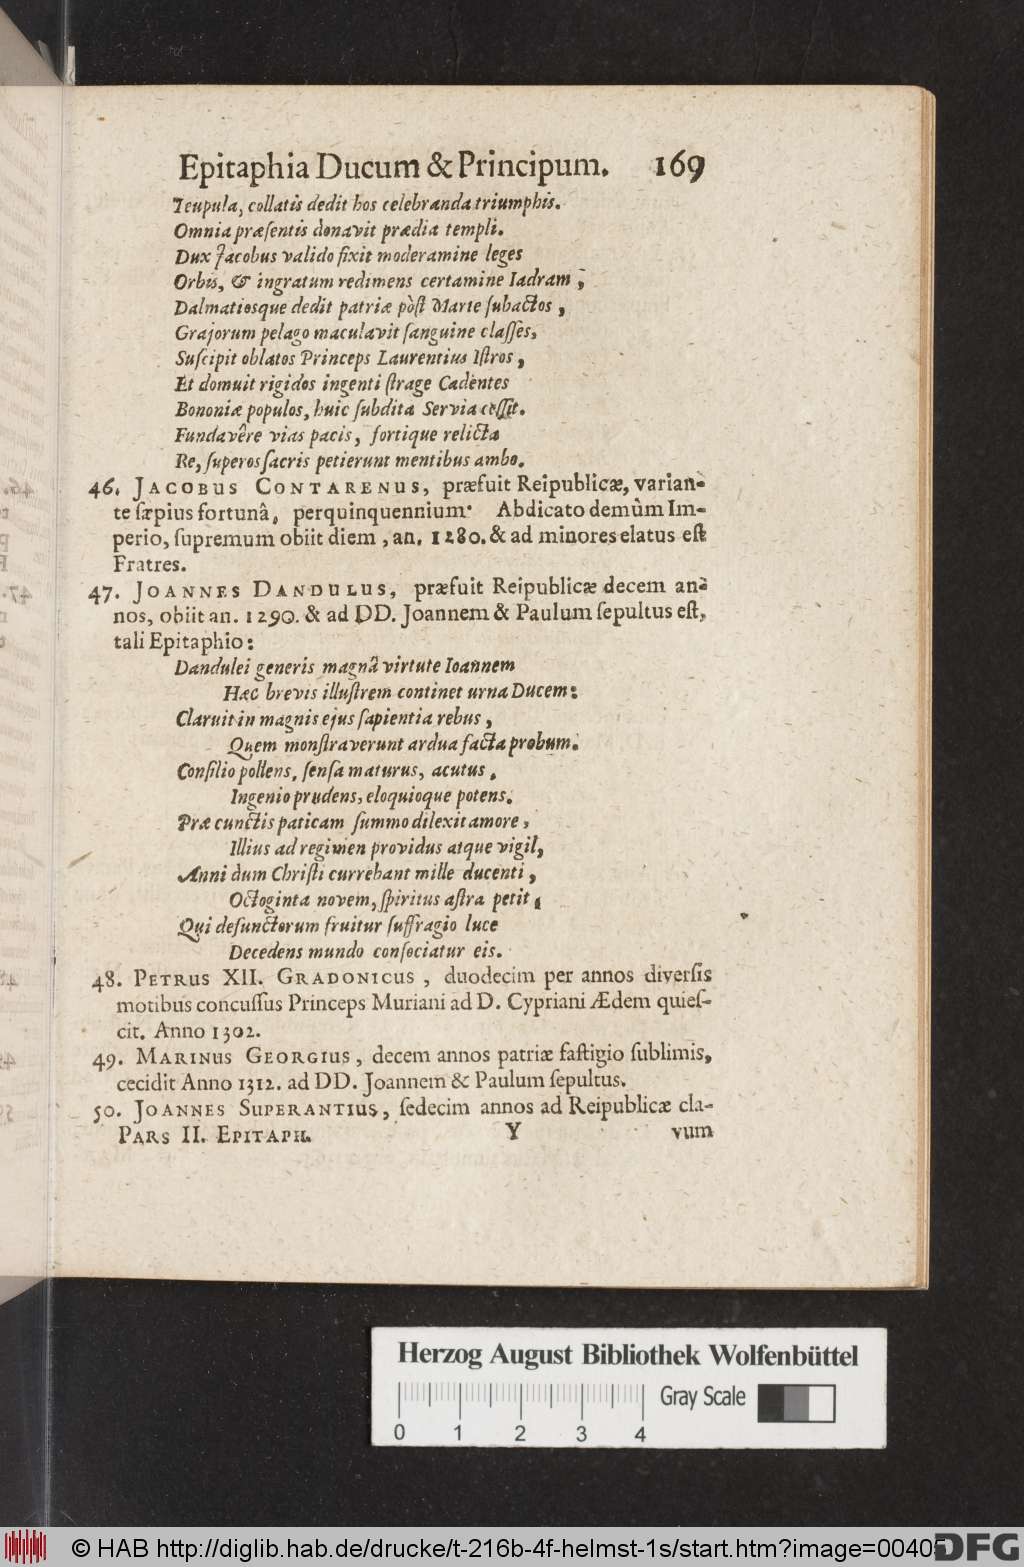 Epitaphia Ducum & Principum. 169
Teupula, collatis dedit hos celebranda triumphis.
Omnia præſentis donavit prædia templi.
Dux Jacobus valido fixit moderamine leges
Orbis, & ingratum redimens certamine Iadram,
Dalmatiosque dedit patriæ pòſt Marte ſubactos,
Grajorum pelago maculavit ſanguine claſſes,
Suſcipit oblatos Princeps Laurentius Iſtros,
Et domuit rigidos ingenti ſtrage Cadentes
Bononiæ populos, huic ſubdita Servia ceſſit.
Fundavêre vias pacis, fortique relicta
Re, ſuperos ſacris petierunt mentibus ambo.
46. JACOBUS CONTARENUS, præfuit Reipublicæ, varian-
te ſæpius fortunâ, perquinquennium. Abdicato demùm Im-
perio, ſupremum obiit diem, an. 1280. & ad minores elatus eſt
Fratres.
47. JOANNES DANDULUS, præfuit Reipublicæ decem an-
nos, obiit an. 1290. & ad DD. Joannem & Paulum ſepultus eſt,
tali Epitaphio:
Dandulei generis magnâ virtute Ioannem
Hæc brevis illuſtrem continet urna Ducem:
Claruit in magnis ejus ſapientia rebus,
Quem monſtraverunt ardua facta probum.
Conſilio pollens, ſenſa maturus, acutus,
Ingenio prudens, eloquioque potens.
Præ cunctis paticam ſummo dilexit amore,
Illius ad regimen providus atque vigil,
Anni dum Chriſti currebant mille ducenti,
Octoginta novem, ſpiritus aſtra petit,
Qui defunctorum fruitur ſuffragio luce
Decedens mundo conſociatur eis.
48. PETRUS XII. GRADONICUS, duodecim per annos diverſis
motibus concuſſus Princeps Muriani ad D. Cypriani Ædem quieſ-
cit. Anno 1302.
49. MARINUS GEORGIUS, decem annos patriæ faſtigio ſublimis,
cecidit Anno 1312. ad DD. Joannem & Paulum ſepultus.
50. JOANNES SUPERANTIUS, ſedecim annos ad Reipublicæ cla-
PARS II. EPITAPH. Y vum
Herzog August Bibliothek Wolfenbüttel
Gray Scale
0 1 2 3 4
© HAB http://diglib.hab.de/drucke/t-216b-4f-helmst-1s/start.htm?image=00405
DFG